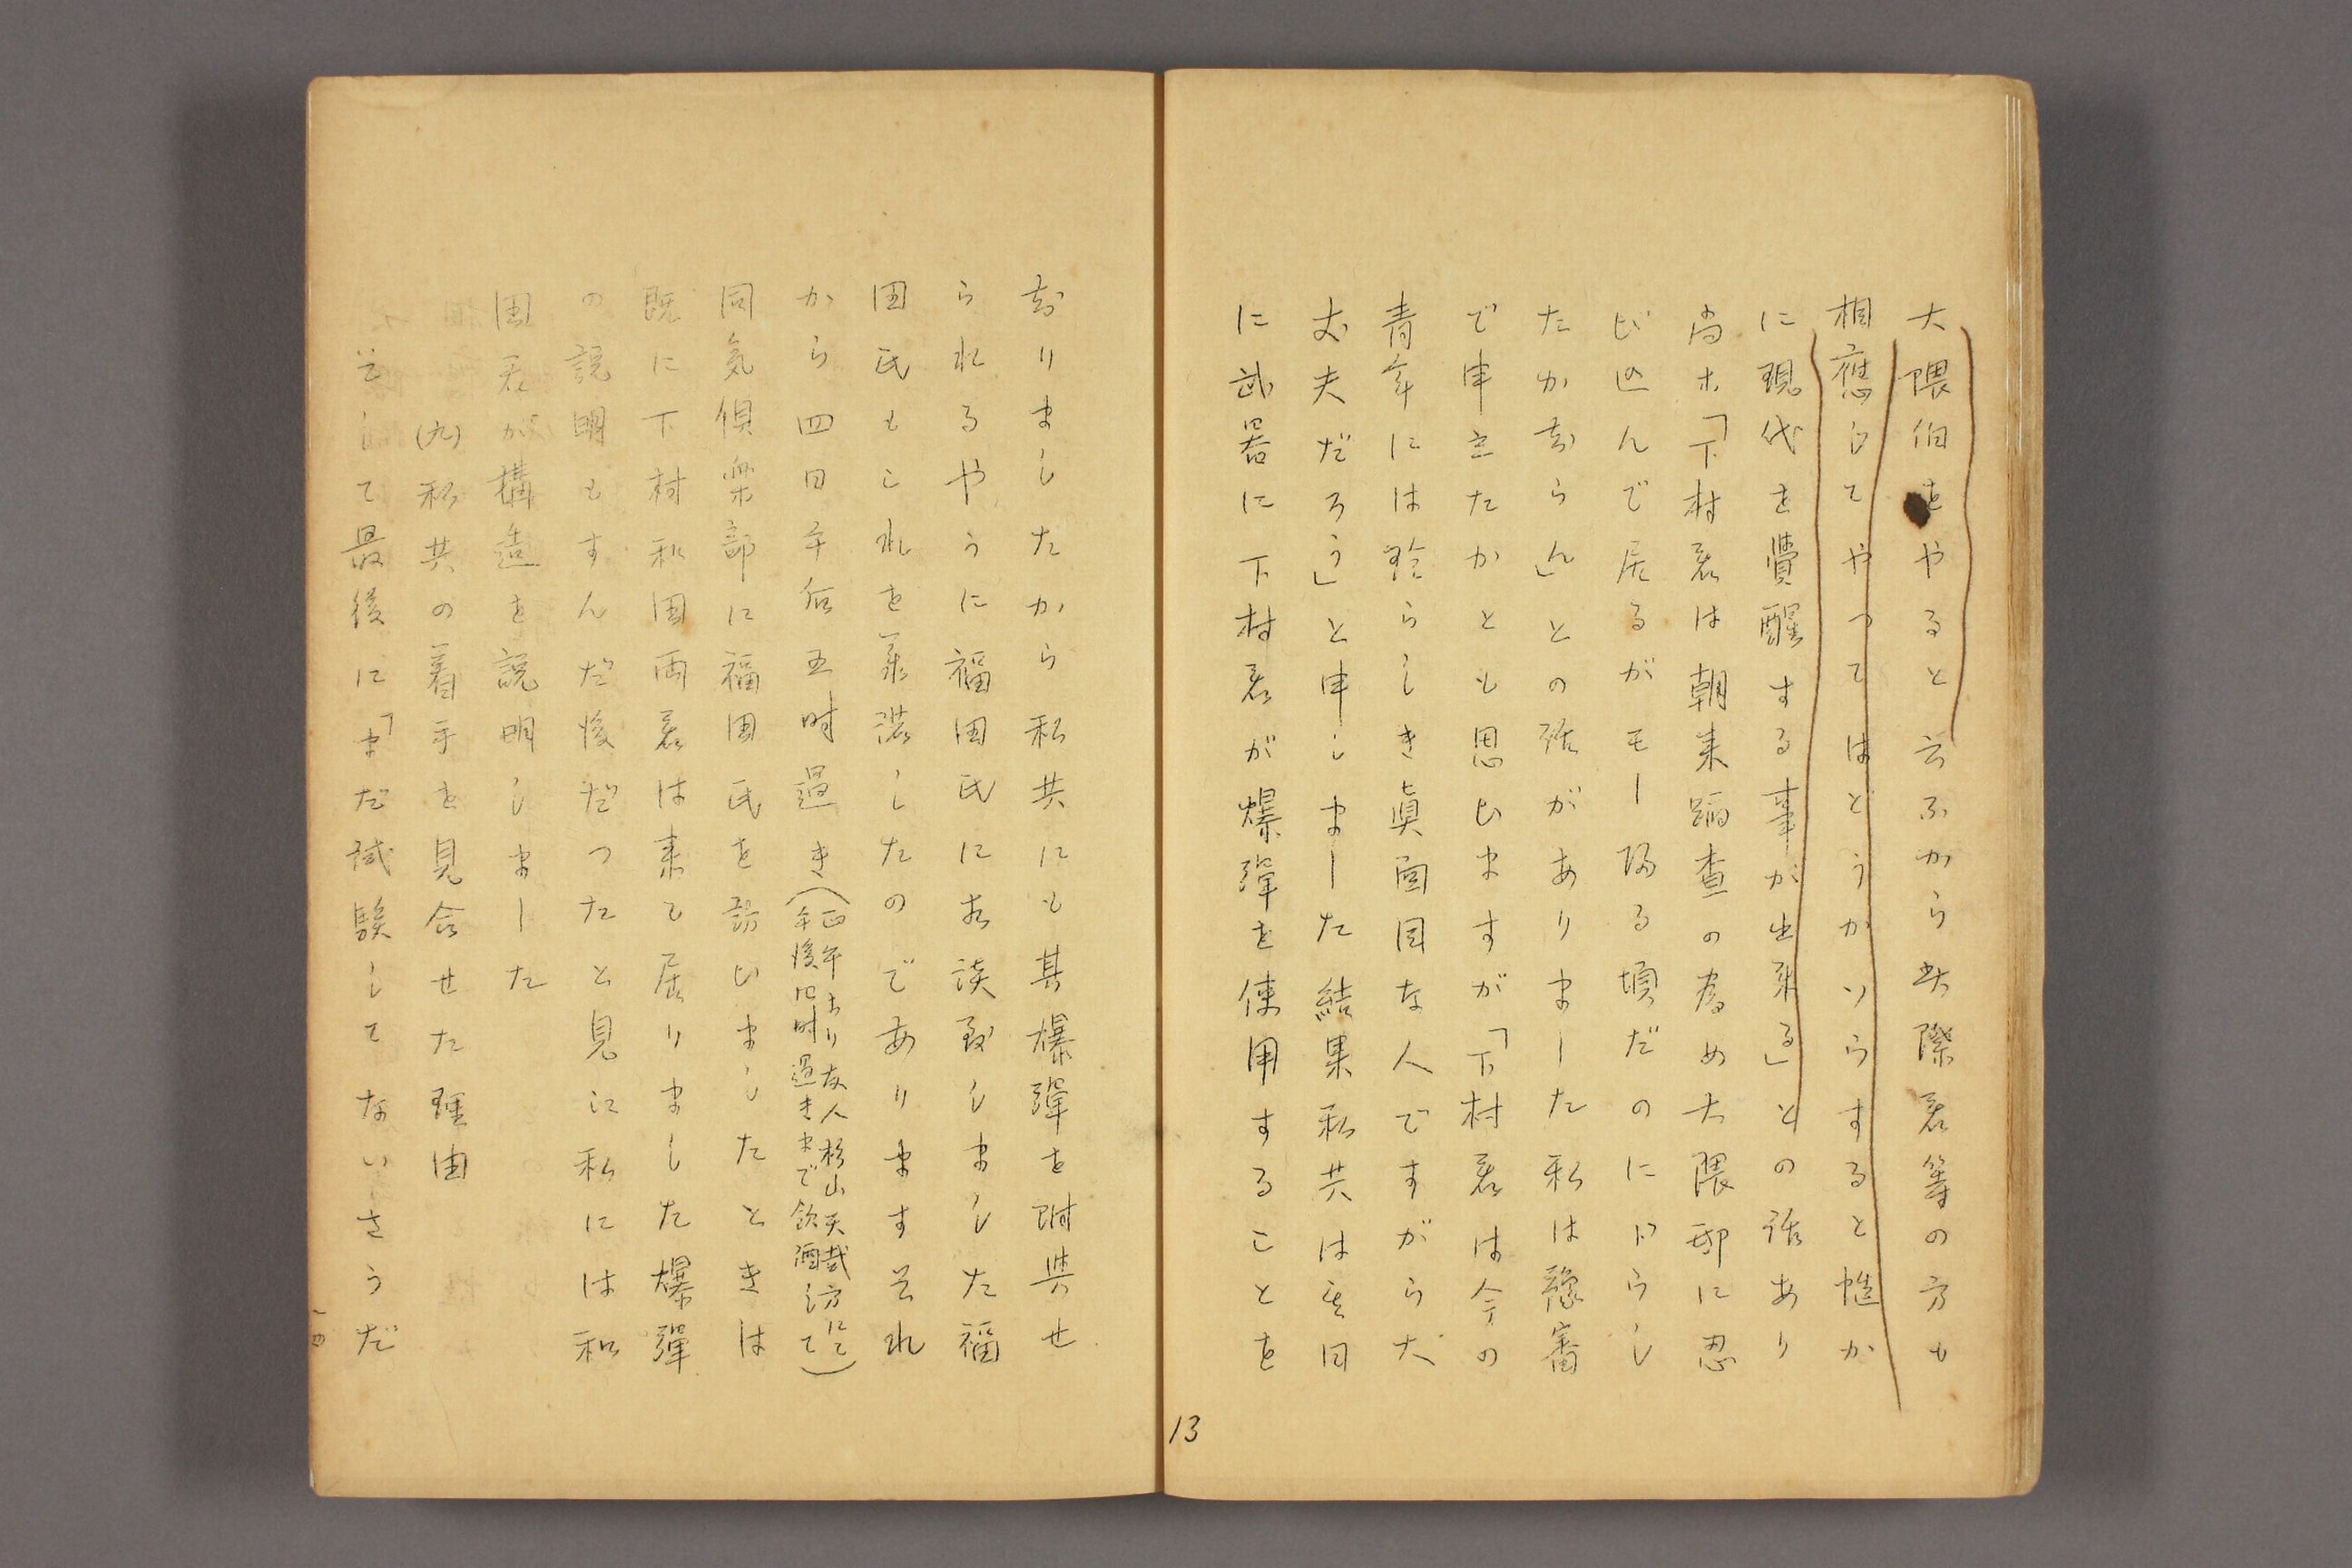 大隈伯をやると云ふから此際君等の方も
相應じてやつてはどうかソラすると愷か
に現代を覺醒する事が出来る」との話あり
尚ホ「下村君は朝来踏査の為め大隈邸に忍
び込んで居るがモー帰る頃だのにドラし
たか知らん」との話がありました私は豫審
で申立たかとも思ひますが「下村君は今の
青年には珍らしき真面目な人ですから大
丈夫だろう」と申しました結果私共は其日
に武器に下村君が爆弾を使用することを
13
知りましたから私共にも其爆弾を附與せ
られるやうに福田氏にお談致しました福
田氏もこれを承諾したのであります其れ
から四日午后五時過き(正午より友人杉山天哉方にて
午後四時過きまで飲酒して)
同気倶楽部に福田氏を訪ひましたときは
既に下村和田両君は来て居りました爆弾
の説明もすんだ後だつたと見に私には和
田君が構造を説明しました
(九)私共の着手を見合せた理由
そして最後に「まだ試験してないさうだ
一四